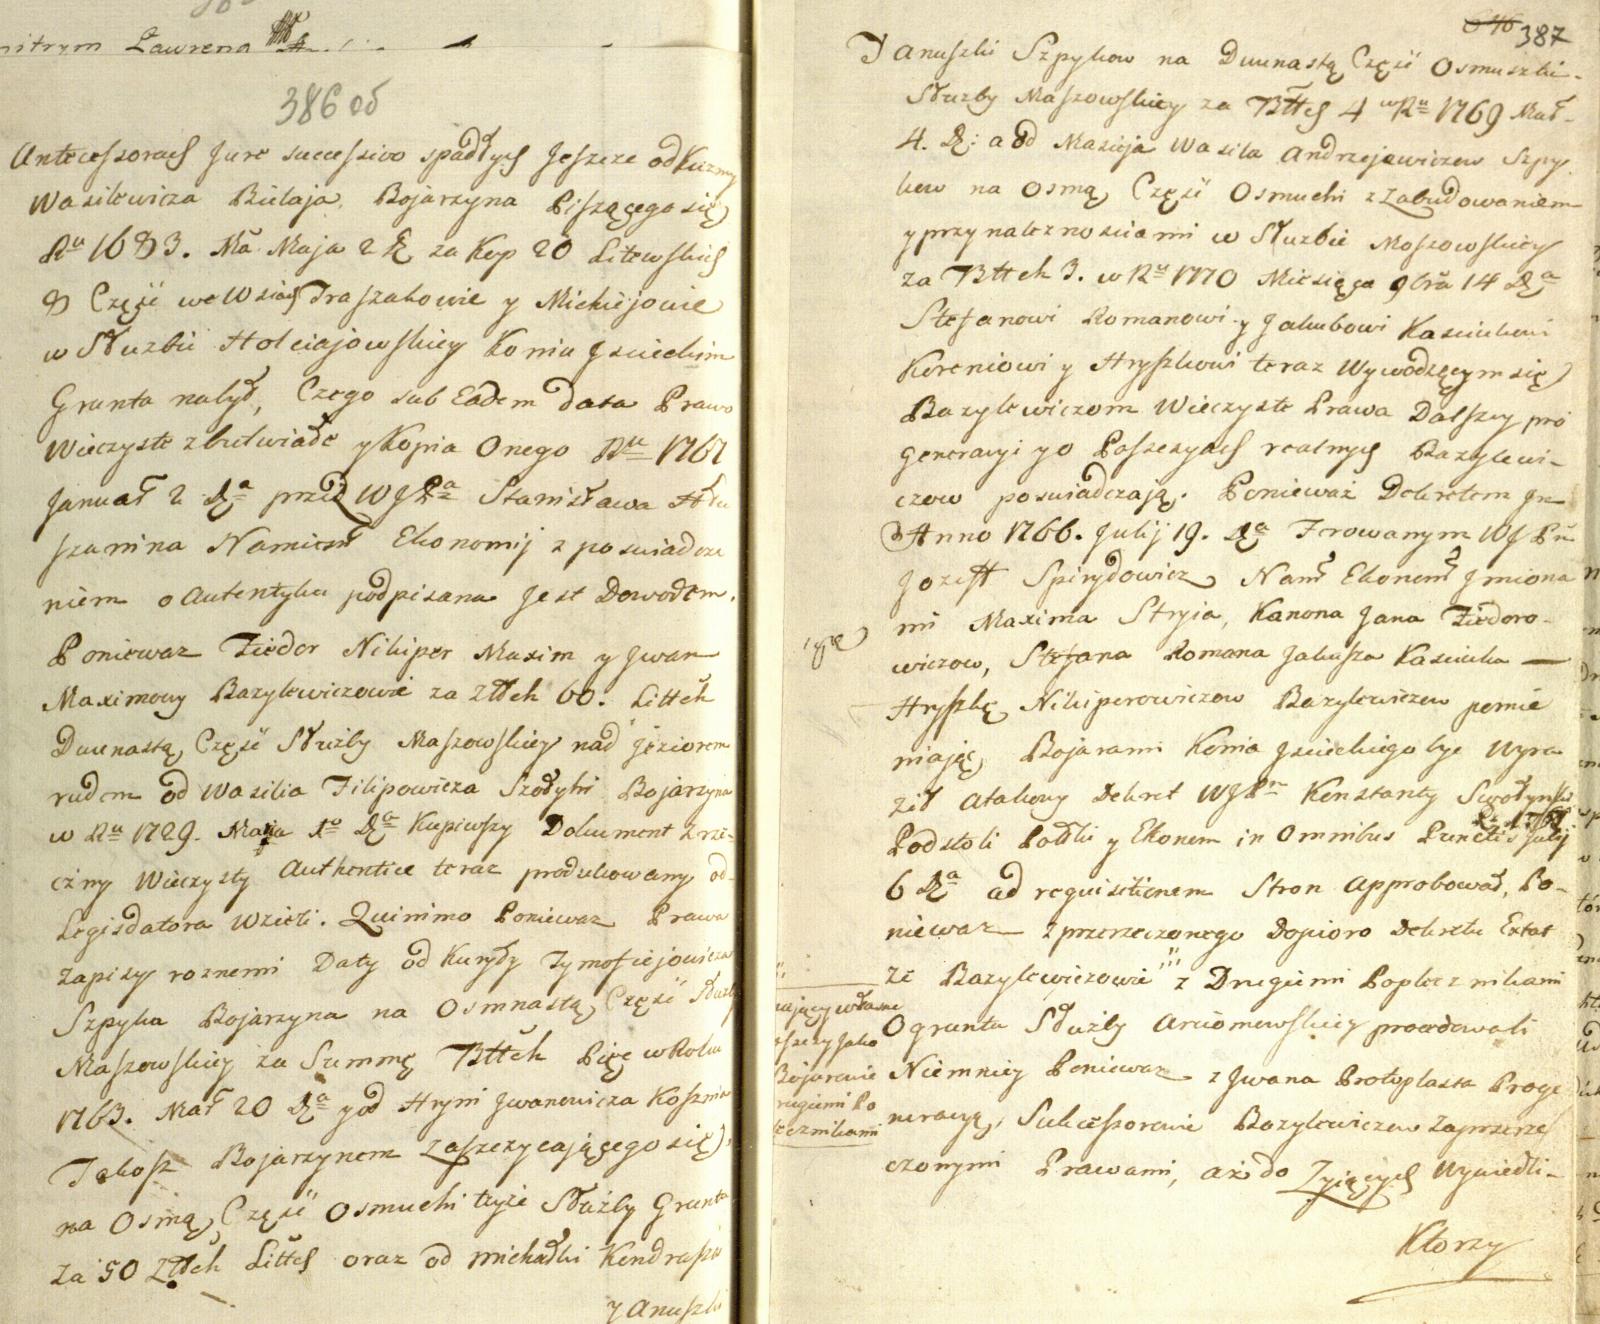 nitrym Ławrena
386 об
Antecessorach Jure successivo spadłych Jeszcze od Kuzmy
Wasilewicza Bielaja Bojarzyna Piszącego się
Ru 1683. Ma Maja 2 D za Kop 20 Litewskich
8 Część we Wsiach Traszakowie y Mickiejowie
w Służbie Holciajowskiey Koniu Jsieckim
Grunta nabył, Czego sub Eadem data Prawo
Wieczyste zbutwiałe y Kopia Onego Ru 1767
Januař 2 Da przed WJPa Stanisława Hłu
szanina Namiesn Ekonomij z poswiadcze
niem o Autentyku podpisana Jest Dowodem.
Poniewaz Fiedor Nikiper Maxim y Jwan
Maximowy Bazylewiczowie za Złtch 60. Littch
Dwunastą Część Służby Maszowskiey nad Jeziorem
rudem od Wasilia Filipowicza Szołyhi Bojarzyna
w Ru 1729. Maja 1o Da Kupiwszy Dokument Wie-
czny Wieczysty Authentice teraz produkowany od
Legisdatora Wzieli. Quinimo Poniewaz Prawa
Zapisy roznemi Daty od Kuryły Tymofiejowicza
Szpyka Bojarzyna na Osmnastą Część Służby
Maszowskiey za Summę Bttch Pięc w Roku
1763. Mař 20 Da y od Hryni Jwanowicza Kosznia
Tokosz Bojarzynem Zaszczycającego się
na Osmą Część Osmuchi teyże Służby Grunta
Za 50 Złtch Littch oraz od Michałki Kondrasza
y Anuszki
387
Januszki Szpykow na Dwunastą Część Osmuszki
Służby Maszowskiey za Bttch 4 w Ru 1769 Mař
4. D: a od Macieja Wasila Andrzejewiczow Szpy
kow na Osmą Część Osmuchi z Zabudowaniem
y przynaleznosciami w Służbie Moszowskiey
za Bttch 3. w Ru 1770 Miesięca 9bra 14 Da
Stefanowi Romanowi y Jakubowi Kasciukowi
Koreniowi y Hryszkowi teraz Wywodzęcym się
Bazylewiczom Wieczyste Prawa Dalszey pro
generacyi y o Possesyach realnych Bazylewi-
czow poswiadczają. Ponieważ Dekretem Jn
Anno 1766. Julij 19. Da Ferowanym WJ Pn
Jozeff Spirydowicz Nam Ekonom Jmiona
mi Maxima Stryia, Kanona Jana Fiedoro-
wiczow, Stefana Romana Jakusza Kasciuka —
Hryszkę Nikiperowiczow Bazylewiczow pomie
niając Bojarami Konia Jsieckiego byc Wyra
ził Atakowy Dekret WJPn Konstanty Swołyński
Podstoli Połłcki y Ekonom in Omnibus Punctis Ru 1768 Julij
6 Da ad requisitionem Stron Approbował, Po-
niewaz z przerzeczonego Dopioro Dekretu Extat
Ze Bazylewiczowie z Drugiemi Poplecznikami
O grunta Służby Arciomowskiey procedowali
Niemniey Poniewaz z Jwana Protoplasta Proge
neracyą, Sukcessorowie Bazylewiczow Zaprzerze
czonymi Prawami, aż do Żyiących Wywiedli-
Ktorzy
mający własne
szczy Jako
Bojarowie
rugiemi Po
lecznikami